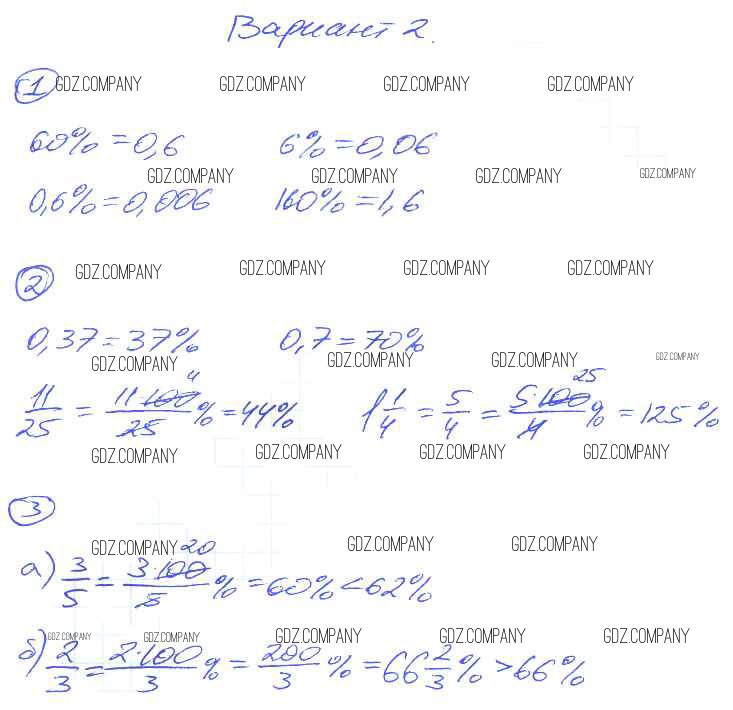 Вариант 2.
1 GDZ.COMPANY GDZ.COMPANY GDZ.COMPANY GDZ.COMPANY
60% = 0,6 6% = 0,06
GDZ.COMPANY GDZ.COMPANY GDZ.COMPANY GDZ.COMPANY
0,6% = 0,006 160% = 1,6
2 GDZ.COMPANY GDZ.COMPANY GDZ.COMPANY GDZ.COMPANY
0,37 = 37% 0,7 = 70%
GDZ.COMPANY GDZ.COMPANY GDZ.COMPANY GDZ.COMPANY
11/25 = 11·100/25 % = 44% 1 1/4 = 5/4 = 5·100/4 % = 125%
4 25
GDZ.COMPANY GDZ.COMPANY GDZ.COMPANY GDZ.COMPANY
3
GDZ.COMPANY 20 GDZ.COMPANY GDZ.COMPANY
а) 3/5 = 3·100/5 % = 60% < 62%
GDZ.COMPANY GDZ.COMPANY GDZ.COMPANY GDZ.COMPANY GDZ.COMPANY
б) 2/3 = 2·100/3 % = 200/3 % = 66 2/3 % > 66%